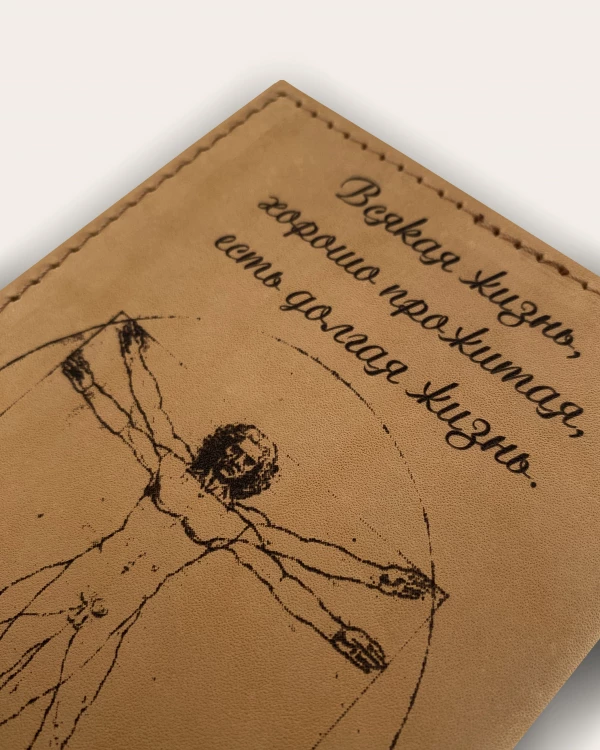 Всякая жизнь,
хорошо прожитая,
есть долгая жизнь.